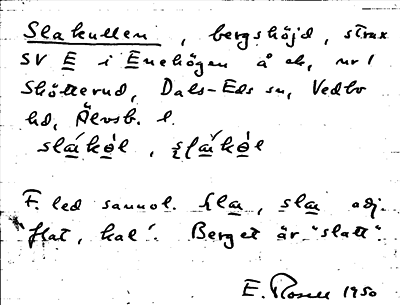 Slakullen, bergshöjd, strax
SV E i Enehögen å ek, nr 1
Skötterud, Dals-Eds sn, Vedbo
hd, Älvsb. l.
F. led sannol. sla, adj.
"flat, kal". Berget är "slatt".
E. Rosell 1950